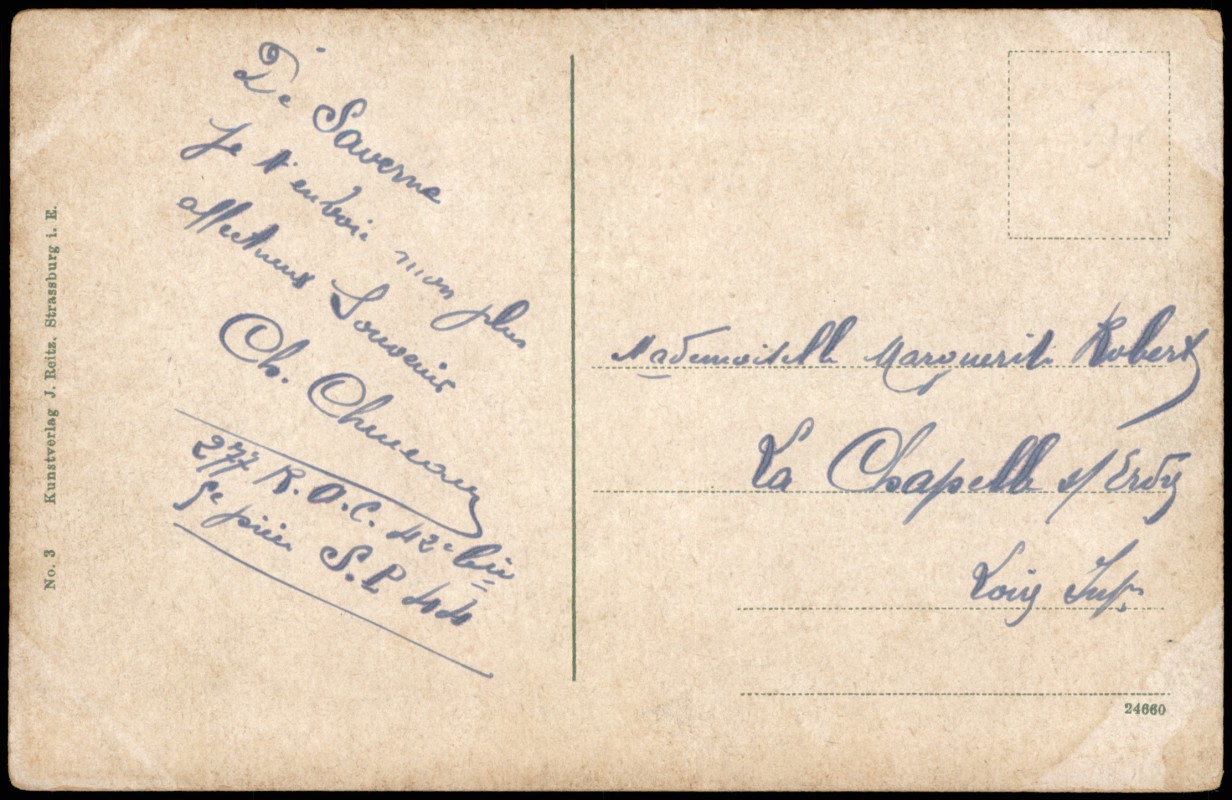 De Saverne
Je t'envoie mon plus
affectueux Souvenir
Ch.
277 R.A.C. 42e Bie
5e pièce S.P. 44
Mademoiselle Marguerite Robert
La Chapelle s/Erdre
Loire Infre
No. 3 Kunstverlag J. Reitz, Strassburg i. E.
24660